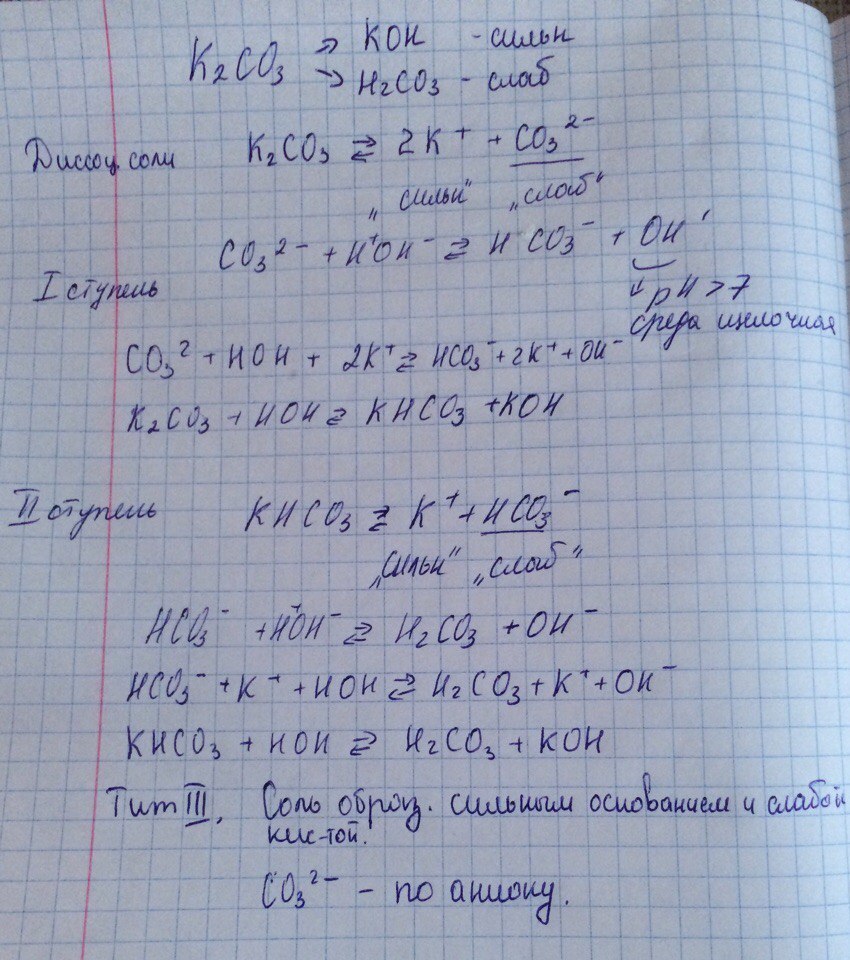 K₂CO₃ → KOH - сильн
→ H₂CO₃ - слаб
Диссоц соли K₂CO₃ ⇄ 2K⁺ + CO₃²⁻
„сильн" „слаб"
CO₃²⁻ + H⁺OH⁻ ⇄ HCO₃⁻ + OH'
I ступель
↓ pH > 7
среда щелочная
CO₃² + HOH + 2K⁺ ⇄ HCO₃⁻ + 2K⁺ + OH⁻
K₂CO₃ + HOH ⇄ KHCO₃ + KOH
II ступель KHCO₃ ⇄ K⁺ + HCO₃⁻
„сильн" „слаб"
HCO₃⁻ + H⁺OH⁻ ⇄ H₂CO₃ + OH⁻
HCO₃⁻ + K⁺ + HOH ⇄ H₂CO₃ + K⁺ + OH⁻
KHCO₃ + HOH ⇄ H₂CO₃ + KOH
Тип III, Соль образ. сильным основанием и слабой
кис-той.
CO₃²⁻ - по аниону.